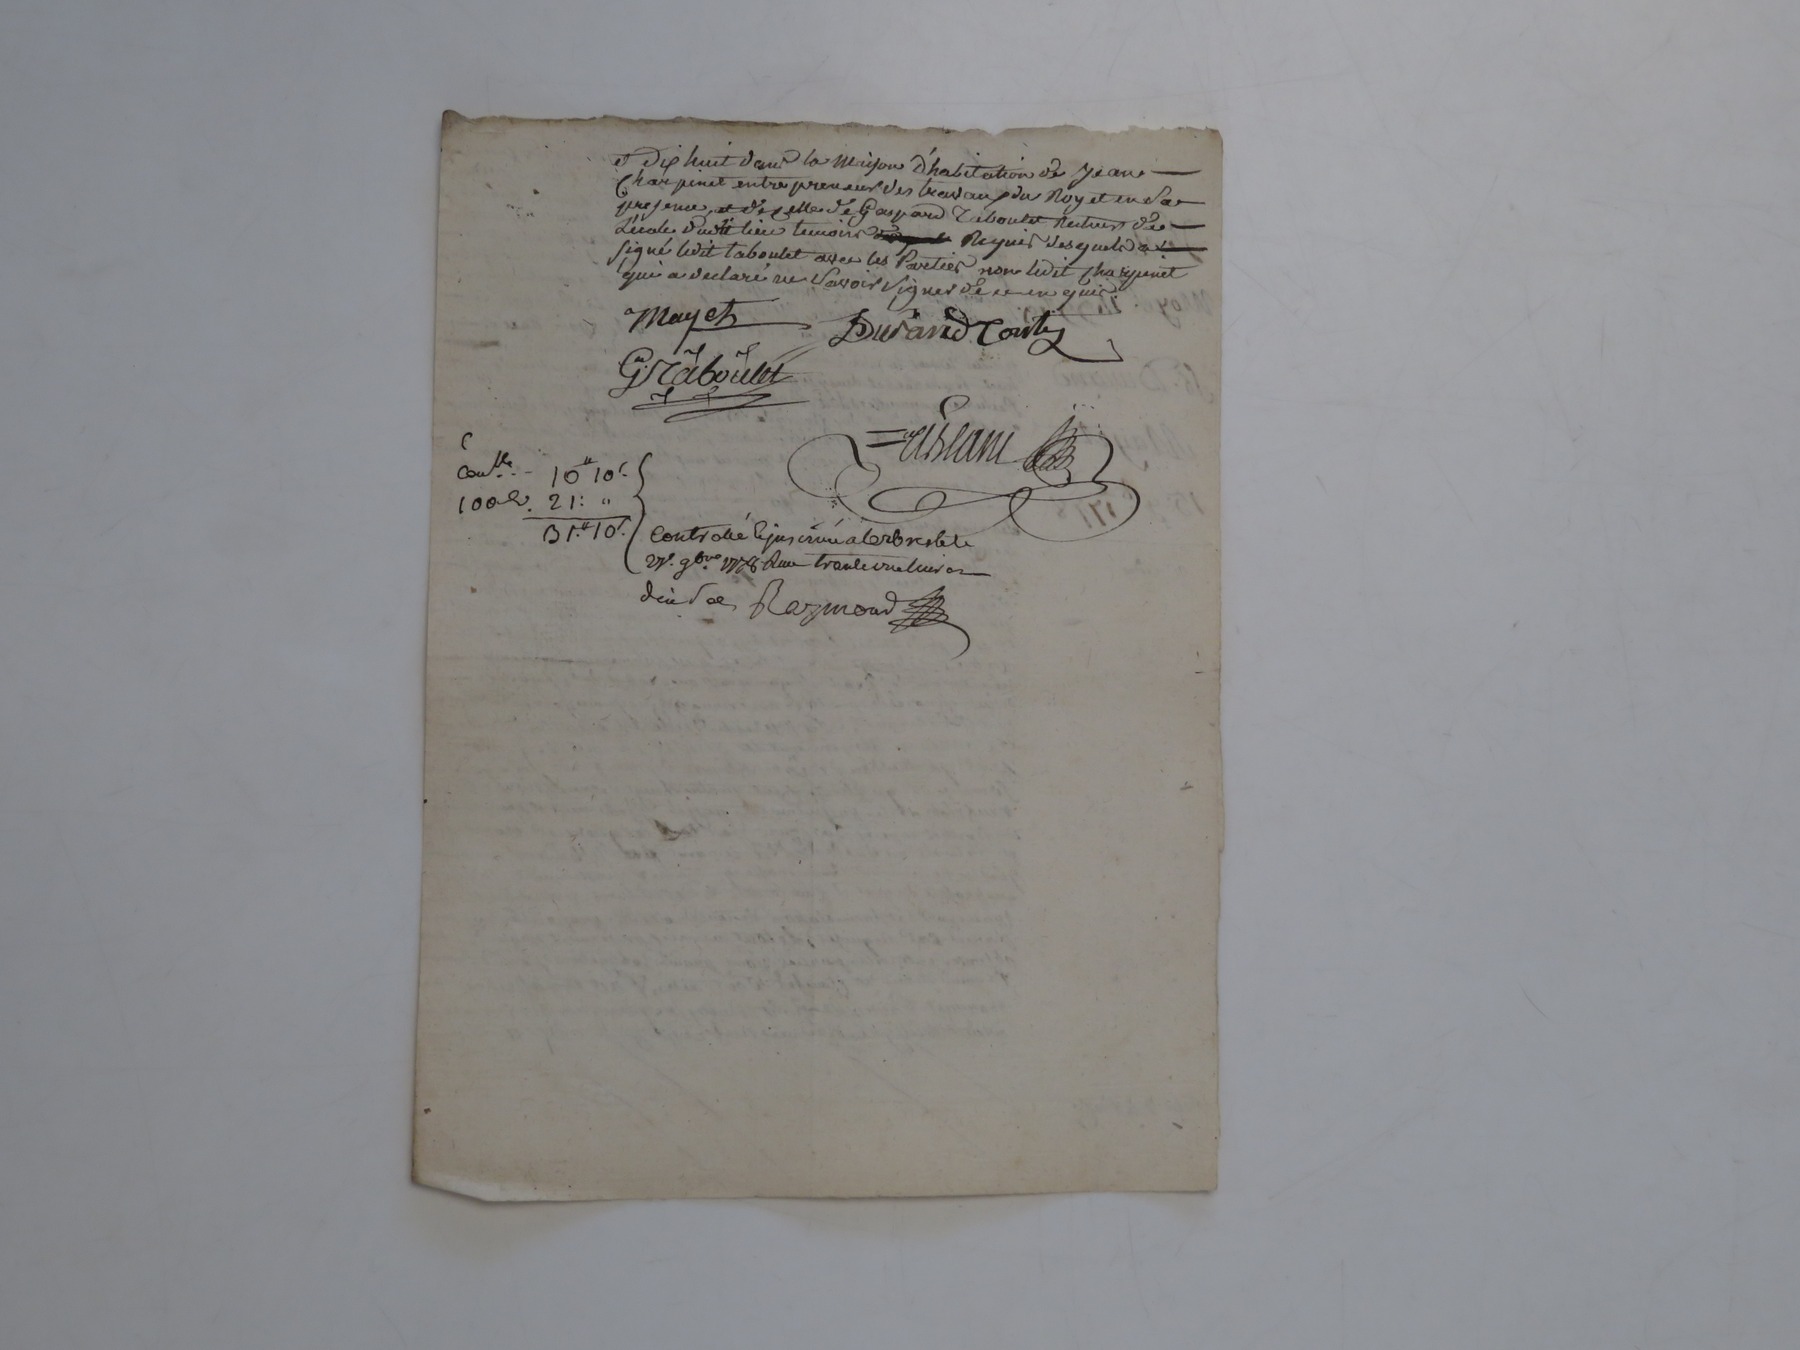 et dix huit dans la Maison d'habitation de Jean
Charpinet entrepreneur des travaux du Roy et en Sa
presence, et de celle de Gaspard Taboulet Recteur de
L'école dudit lieu temoins Requis desquels a
signé ledit taboulet avec les Parties non ledit Charpinet
qui a declaré ne Savoir Signer de ce enquis.
Mayet Durand Conte
Gd Taboulet
Conlle. - 10# 10s.
100e d. 21: "
31.# 10s.
Controlé & insinué
27e. 9bre 1778 trante une livre
dix Sols Raymond